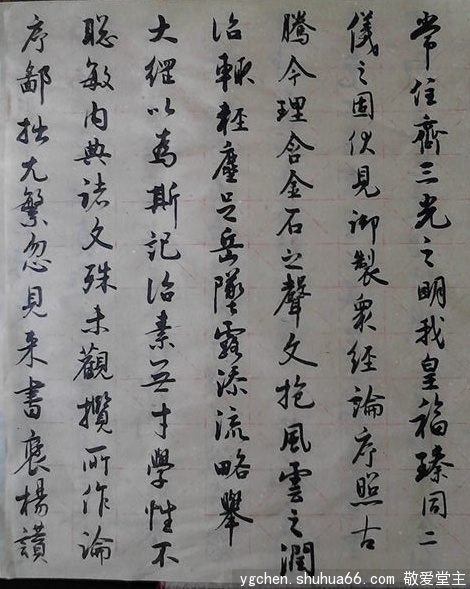 常住齊三光之明我皇福臻同二
儀之固伏見御製眾經論序照古
騰今理含金石之聲文抱風雲之潤
治輒輕塵足岳墜露添流略舉
大綱以為斯記治素無才學性不
聰敏內典諸文殊未觀攬所作論
序鄙拙尤繁忽見來書褒揚讚
ygchen.shuhua66.com 敬爱堂主